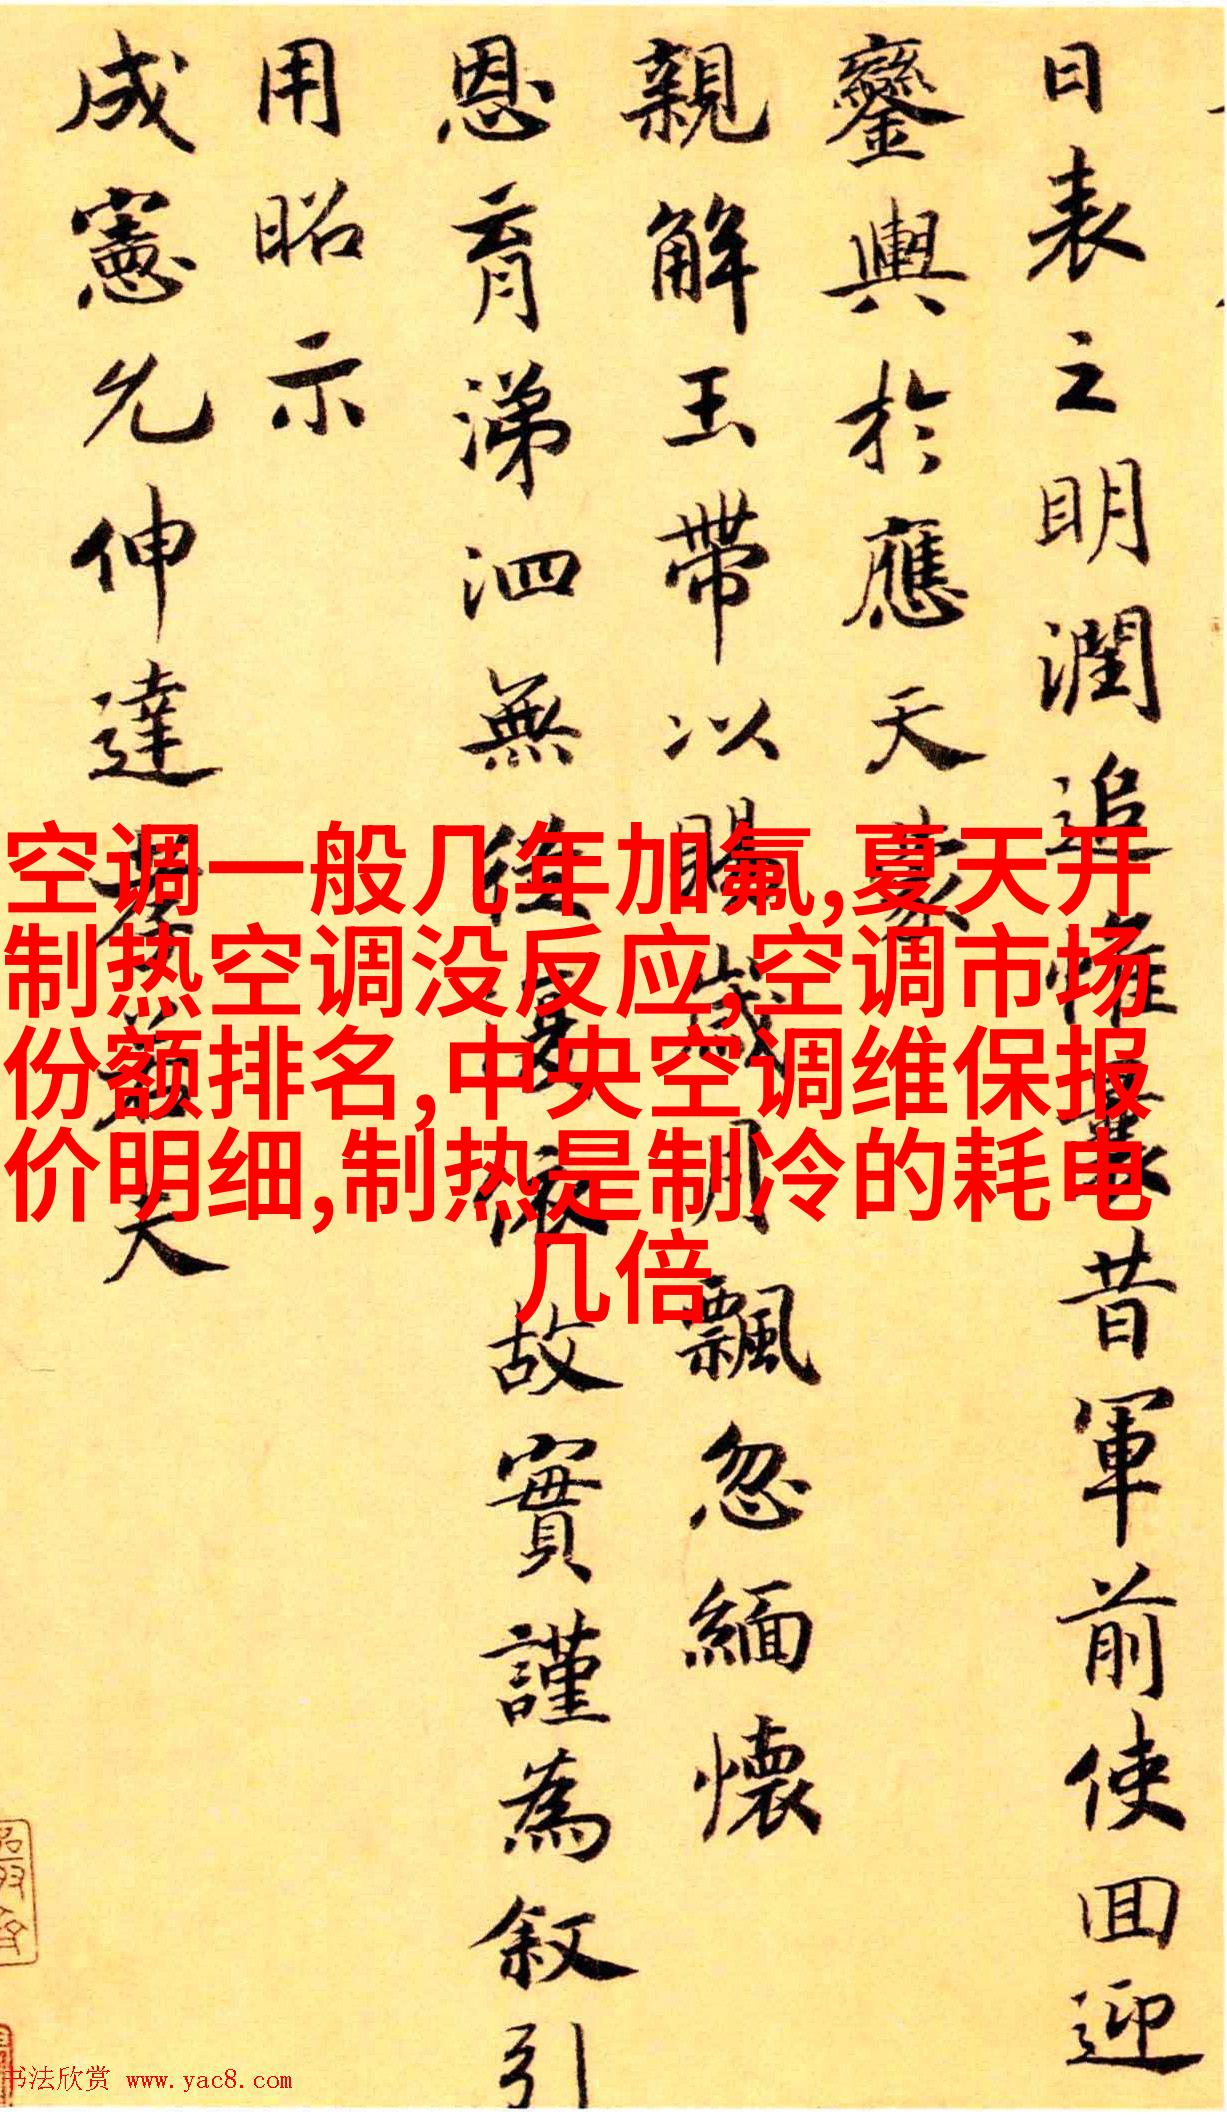 日表之明潤追惟曩昔軍前使回迎
鑾輿於應天蒙
親解玉帶以賜歲月飄忽緬懷
恩育涕泗無從謹依故實謹為叙引
用昭示
成憲允伸達孝若夫
空调一般几年加氟,夏天开
制热空调没反应,空调市场
份额排名,中央空调维保报
价明细,制热是制冷的耗电
几倍
书法欣赏 www.yac8.com